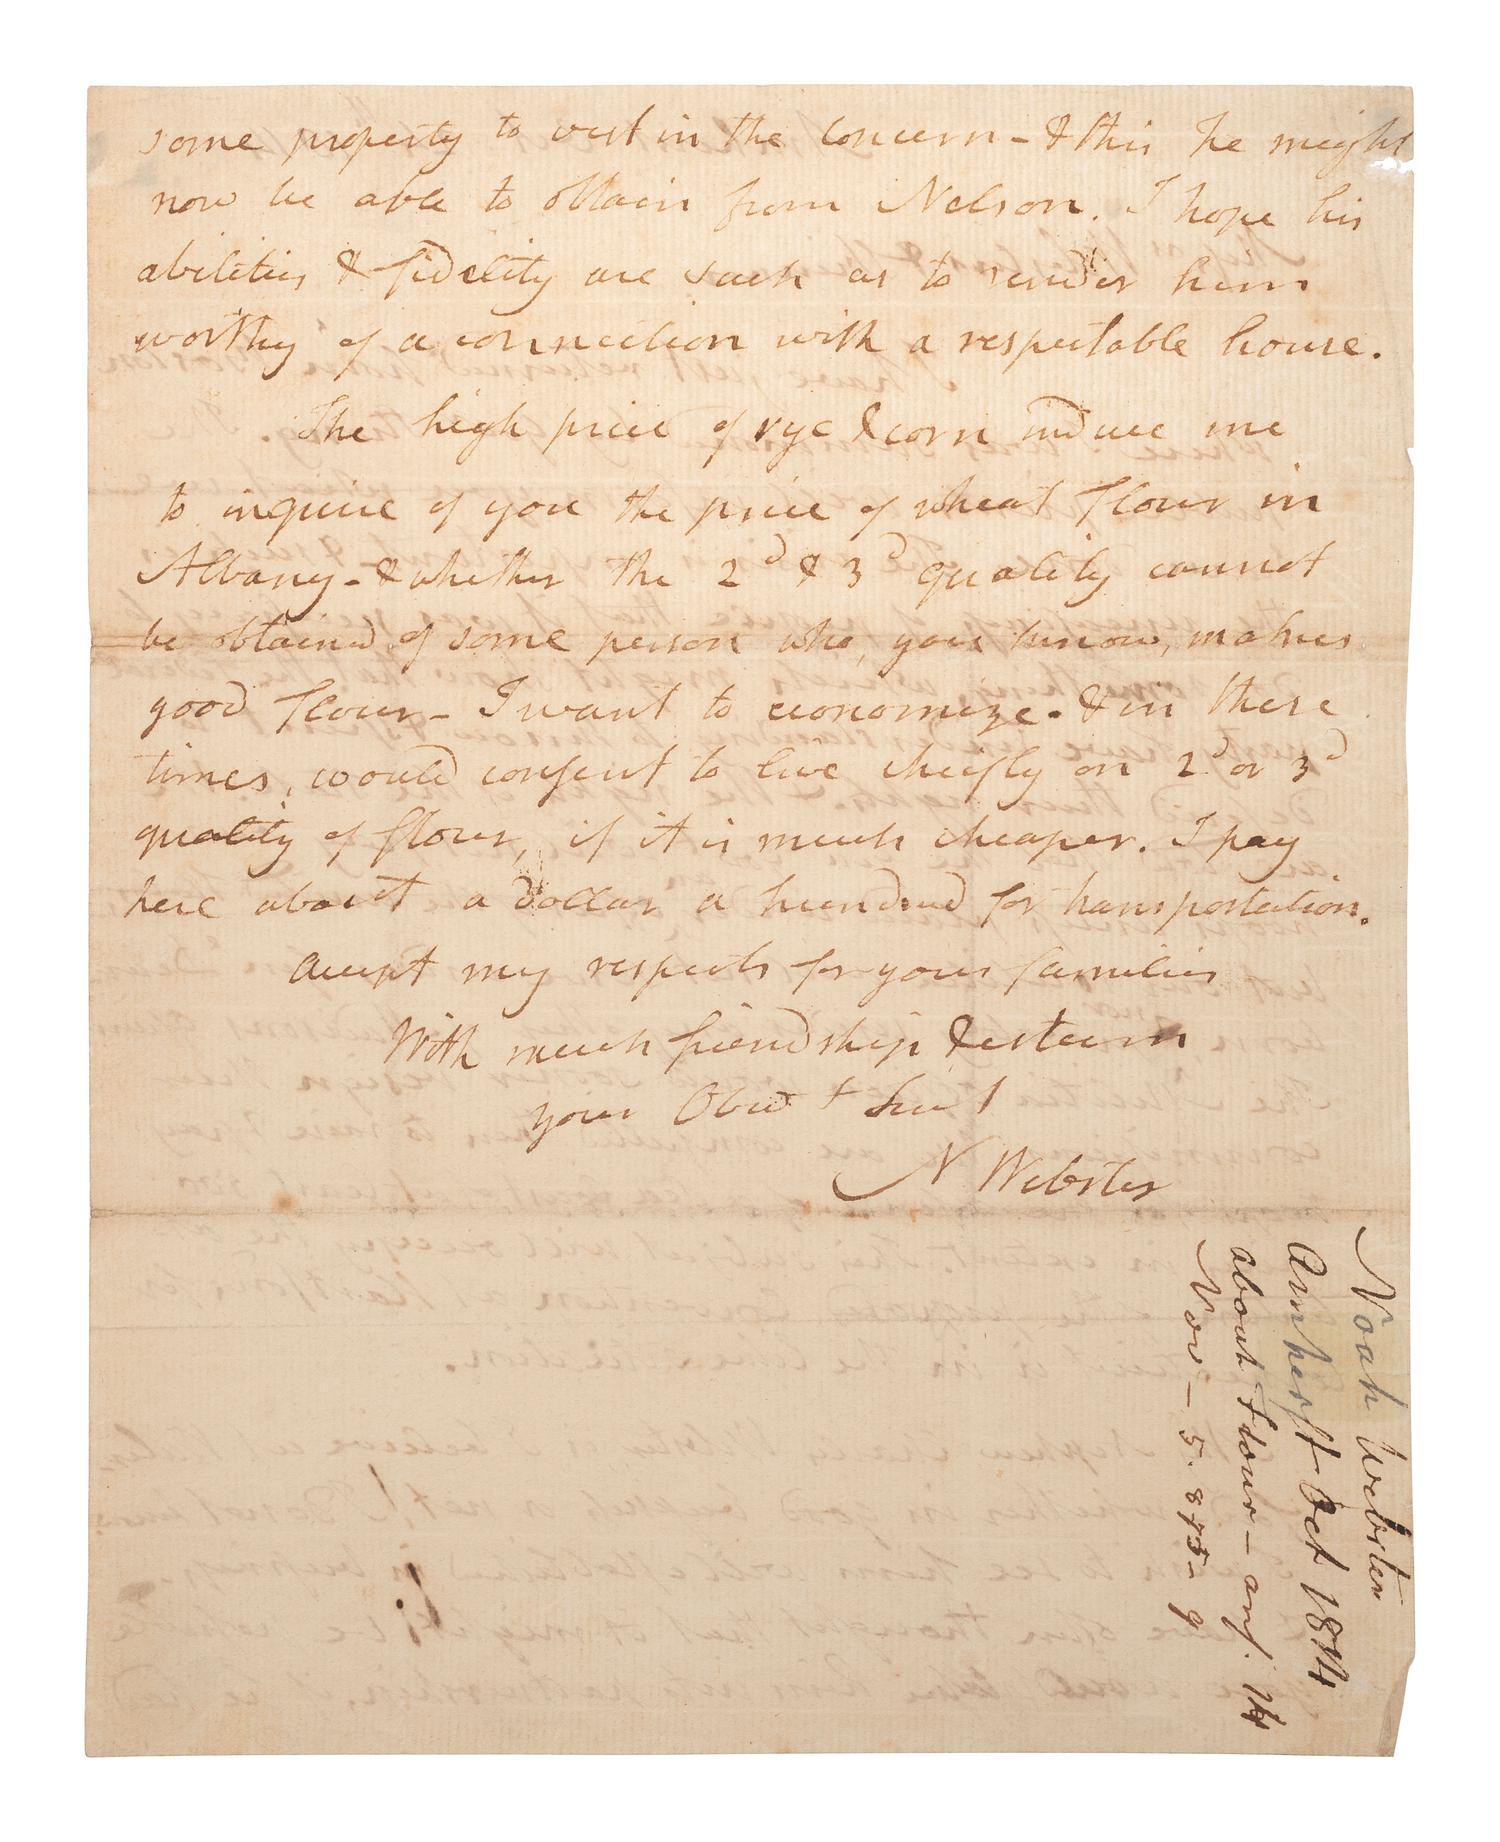 some property to vest in the concern - & this he might
now be able to obtain from Nelson. I hope his
abilities & fidelity are such as to render him
worthy of a connection with a respectable house.
The high price of rye & corn induce me
to inquire of you the price of wheat flour in
Albany - & whether the 2d & 3d quality cannot
be obtained of some person who, you know, makes
good flour - I want to economize. & in these
times, would consent to live chiefly on 2d or 3d
quality of flour, if it is much cheaper. I pay
here about a dollar a hundred for transportation.
Accept my respects for your families
With much friendship & esteem
your Obed t Serv t
N Webster
Noah Webster
Amherst Oct 1814
about Flour - ans. 14
Nov -